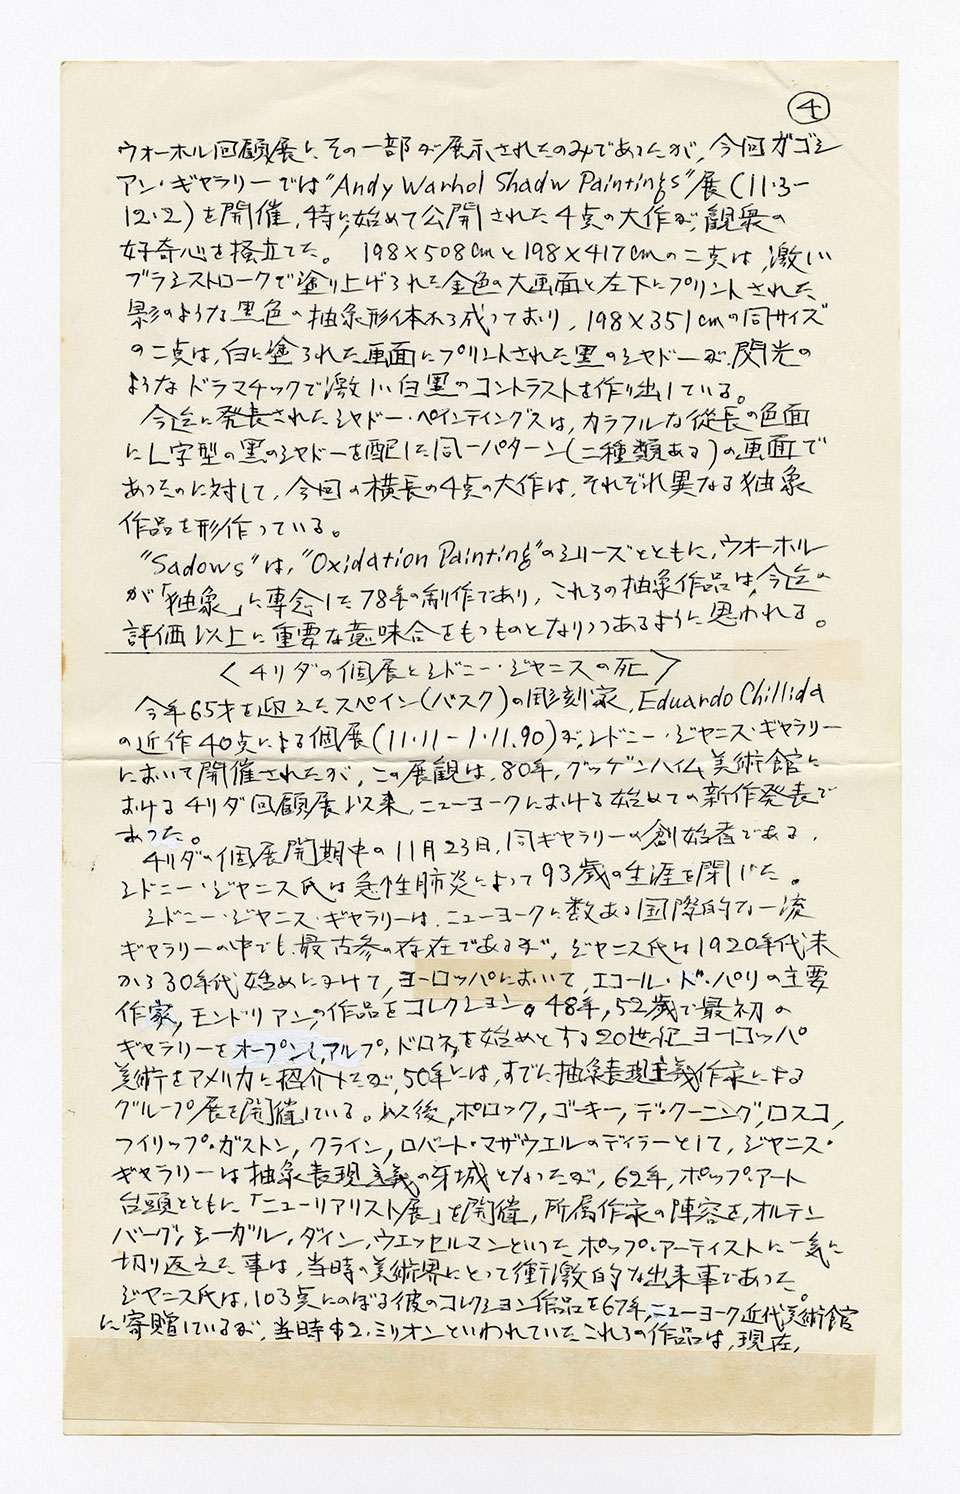 ④
ウォーホル回顧展にその一部が展示されたのみであったが、今回ガゴシ
アン・ギャラリーでは"Andy Warhol Shadw Paintings"展(11・3-
12・2)を開催、特に始めて公開された4点の大作が、観衆の
好奇心を掻立てた。 198×508cmと198×417cmの二点は、激しい
ブラシストロークで塗り上げられた金色の大画面と左下にプリントされた
影のような黒色の抽象形体から成っており、198×351cmの同サイズ
の二点は、白に塗られた画面にプリントされた黒のシャドーが、閃光の
ようなドラマチックで激しい白黒のコントラストを作り出している。
今迄に発表されたシャドー・ペインティングスは、カラフルな従長の色面
にL字型の黒のシャドーを配した同一パターン(二種類ある)の画面で
あったのに対して、今回の横長の4点の大作は、それぞれ異なる抽象
作品を形作っている。
"Sadows"は、"Oxidation Painting"のシリーズとともに、ウォーホル
が「抽象」に専念した78年の制作であり、これらの抽象作品は、今迄の
評価以上に重要な意味合をもつものとなりつつあるように思われる。
〈チリダの個展とシドニー・ジャニスの死〉
今年65才を迎えたスペイン(バスク)の彫刻家、Eduardo Chillida
の近作40点による個展(11・11-1・11.90)が、シドニー・ジャニス・ギャラリー
において開催されたが、この展観は、80年、グッゲンハイム美術館に
おけるチリダ回顧展以来、ニューヨークにおける始めての新作発表で
あった。
チリダの個展開期中の11月23日、同ギャラリーの創始者である、
シドニー・ジャニス氏は急性肺炎によって93歳の生涯を閉じた。
シドニー・ジャニス・ギャラリーは、ニューヨークに数ある国際的な一流
ギャラリーの中でも、最古参の存在であるが、ジャニス氏は1920年代末
から30年代始めにかけて、ヨーロッパにおいて、エコール・ド・パリの主要
作家、モンドリアンの作品をコレクション。48年、52歳で最初の
ギャラリーをオープンし、アルプ、ドロネを始めとする20世紀ヨーロッパ
美術をアメリカに紹介したが、50年には、すでに抽象表現主義作家による
グループ展を開催している。以後、ポロック、ゴーキー、デ・クーニング、ロスコ、
フイリップ・ガストン、クライン、ロバート・マザウエルのディラーとして、ジャニス・
ギャラリーは抽象表現主義の牙城となったが、62年、ポップ・アート
台頭とともに「ニューリアリスト展」を開催、所属作家の陣容を、オルデン
バーグ、シーガル、ダイン、ウエッセルマンといった、ポップ・アーティストに一気に
切り返えた事は、当時の美術界にとって衝激的な出来事であった。
ジャニス氏は、103点にのぼる彼のコレクション作品を67年、ニューヨーク近代美術館
に寄贈しているが、当時$2・ミリオンといわれていたこれらの作品は、現在、